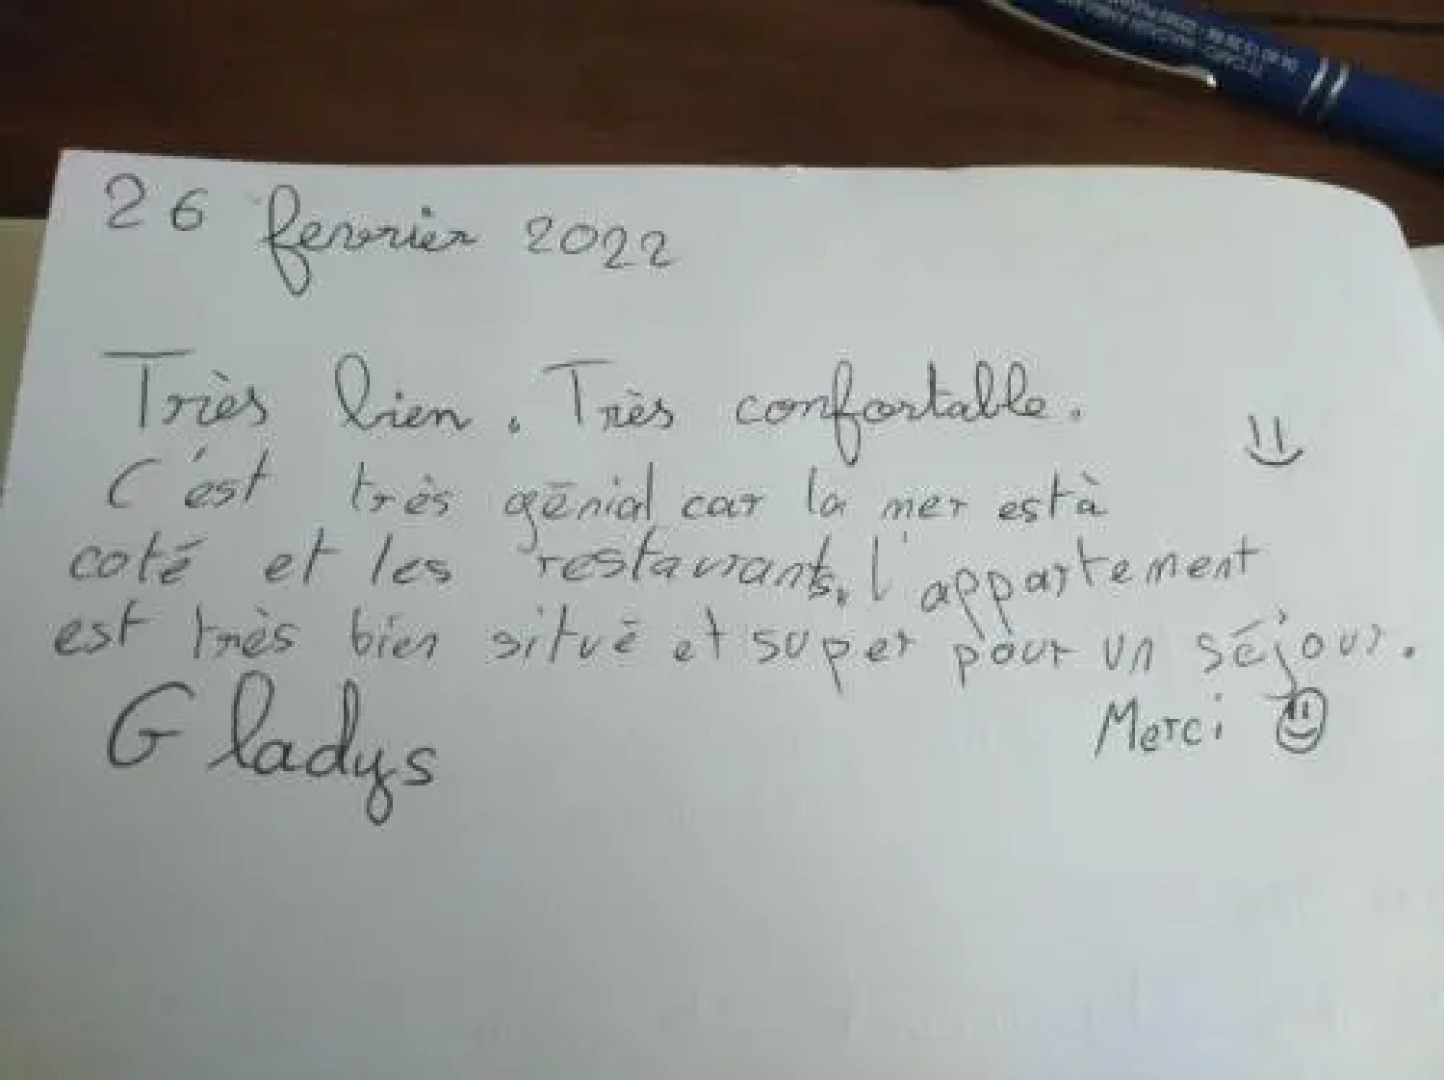 26 fevrier 2022
Très bien. Très confortable.
C'est très génial car la mer est à
coté et les restaurants. l'appartement
est très bien situé et super pour un séjour.
Gladys
Merci